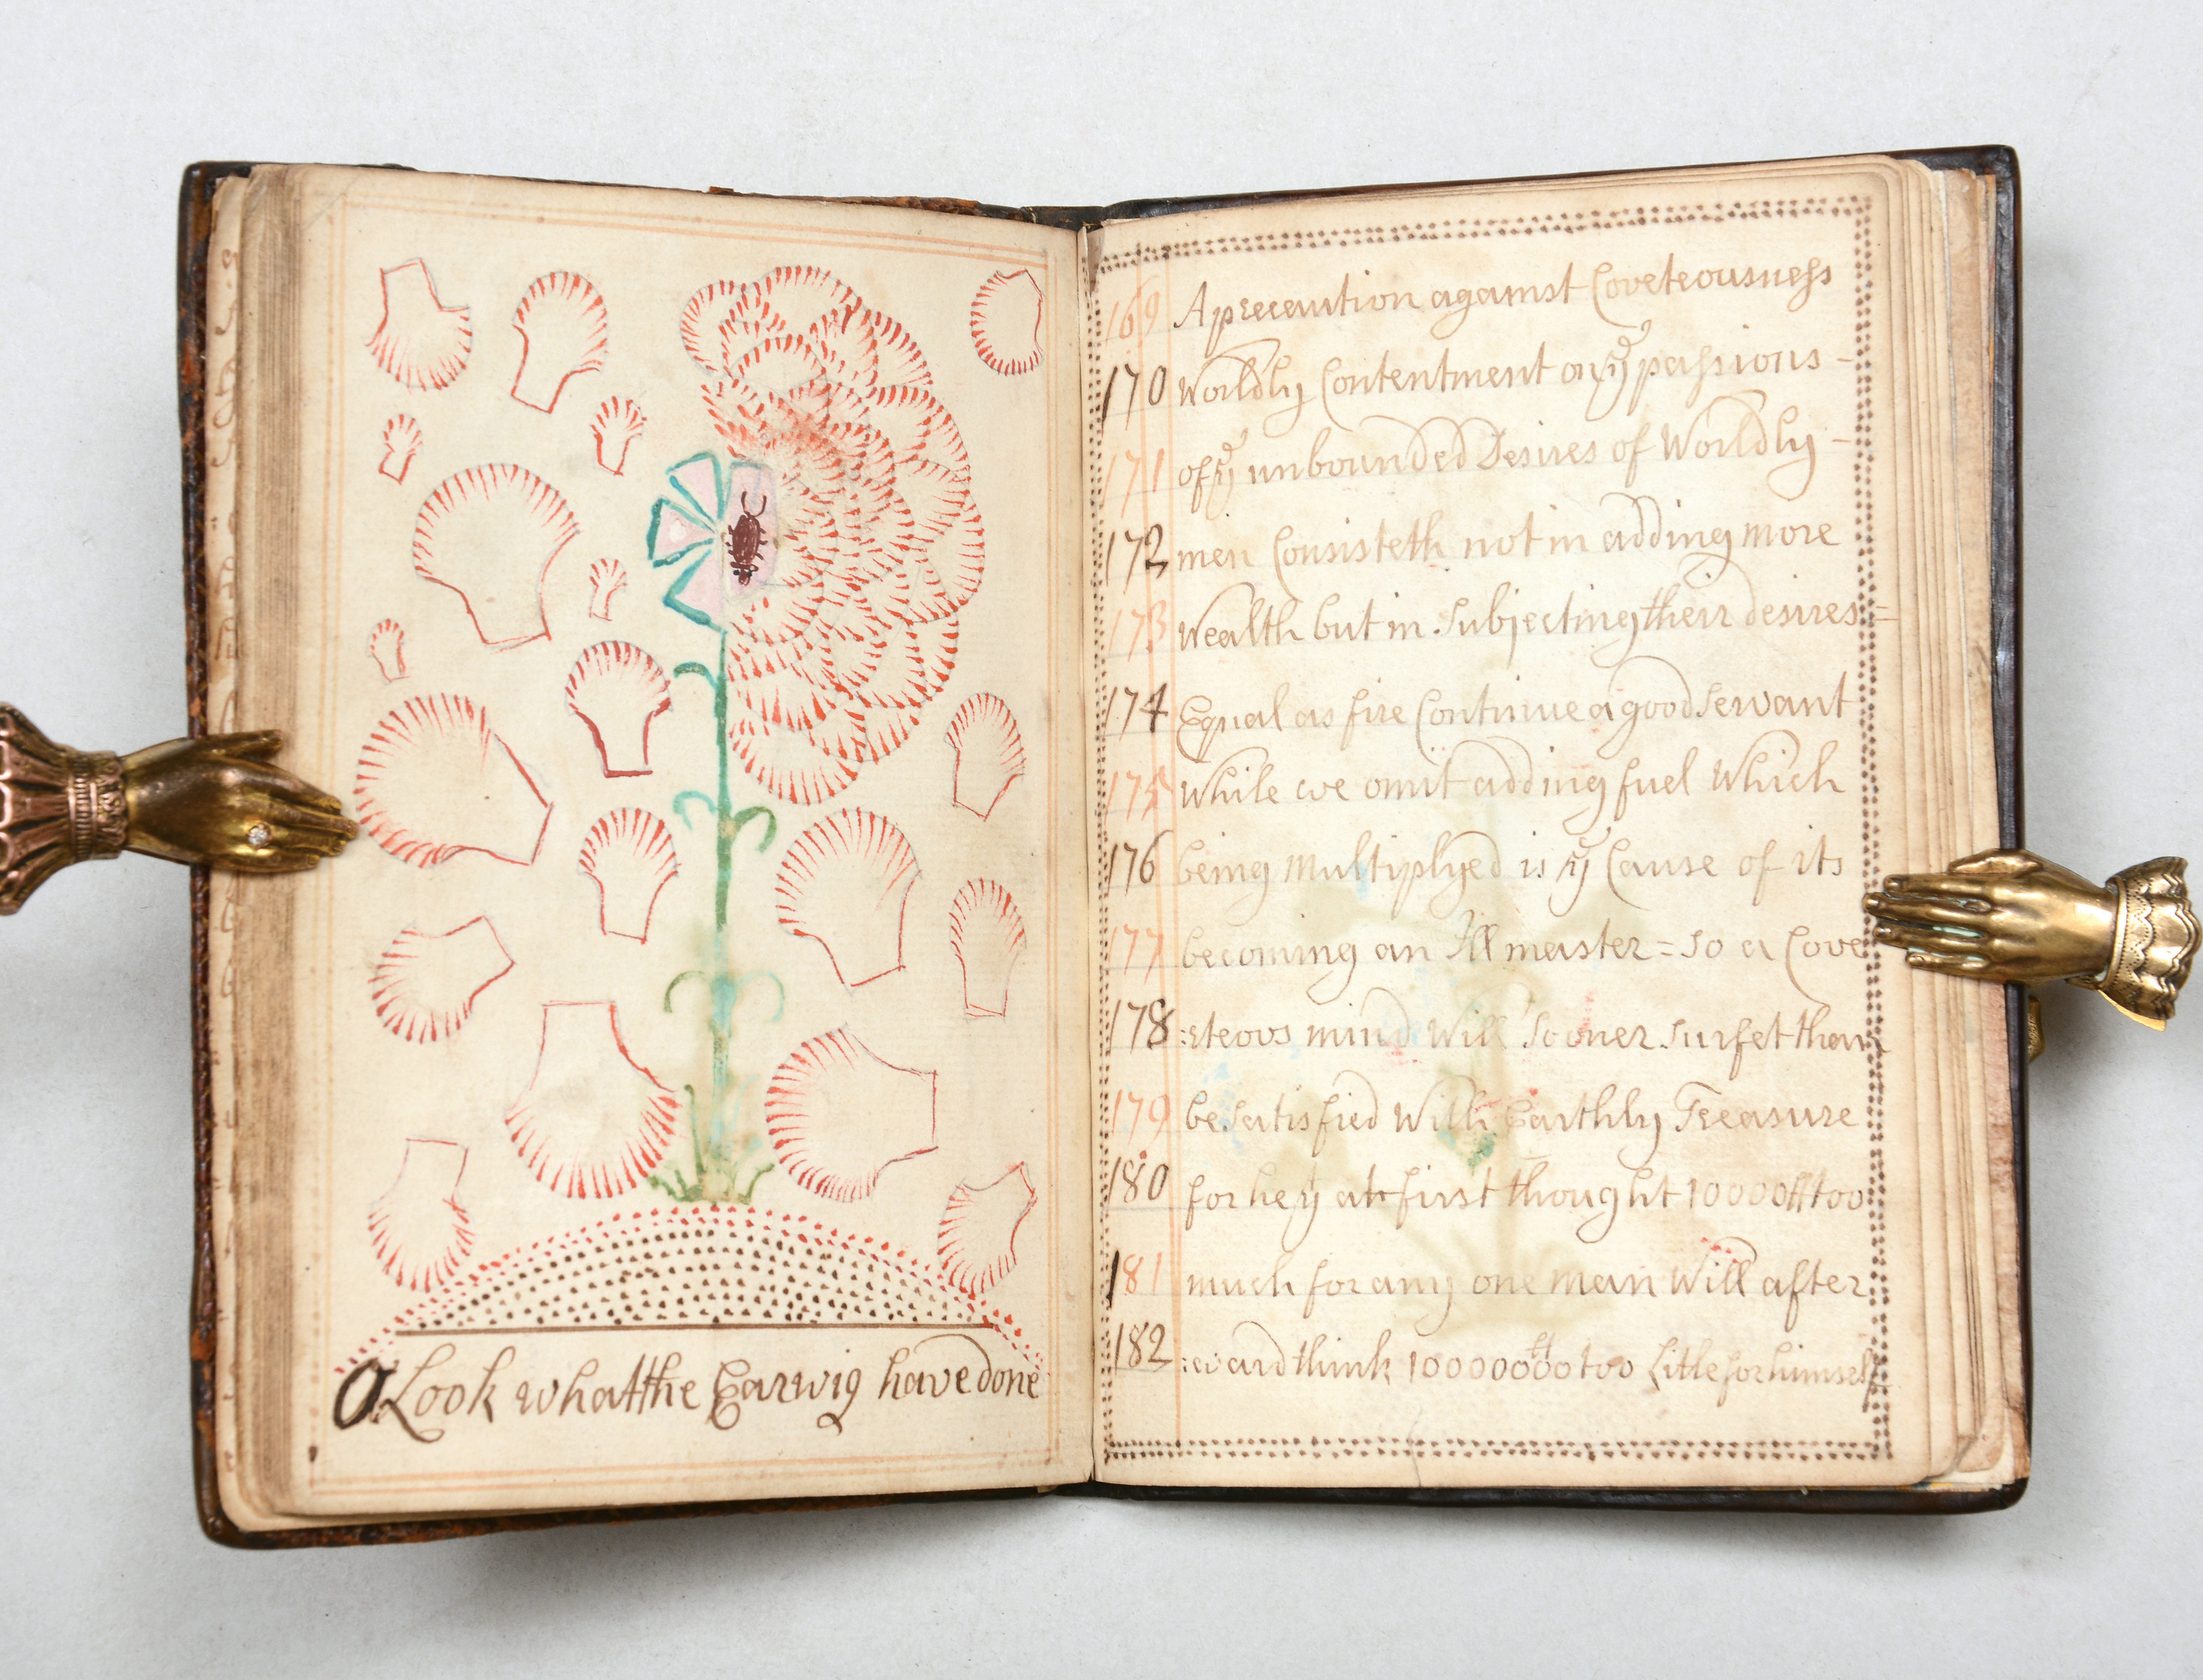 O Look what the Earwig have done
169 A precaution against Coveteousness
170 Worldly Contentment or yᵉ passions -
171 of yᵉ unbounded Desires of Worldly -
172 men Consisteth not in adding more
173 Wealth but in Subjecting their desires =
174 Equal as fire Continue a good Servant
175 While we omit adding fuel Which
176 being Multiplyed is yᵉ Cause of its
177 becoming an Ill master = So a Cove
178 :steovs mind Will Sooner Surfet than
179 be Satisfied With Earthly Treasure
180 for he yᵗ at first thought 10000ˡˡ too
181 much for any one man Will after
182 :ward think 1000000ˡˡ too Little for himself